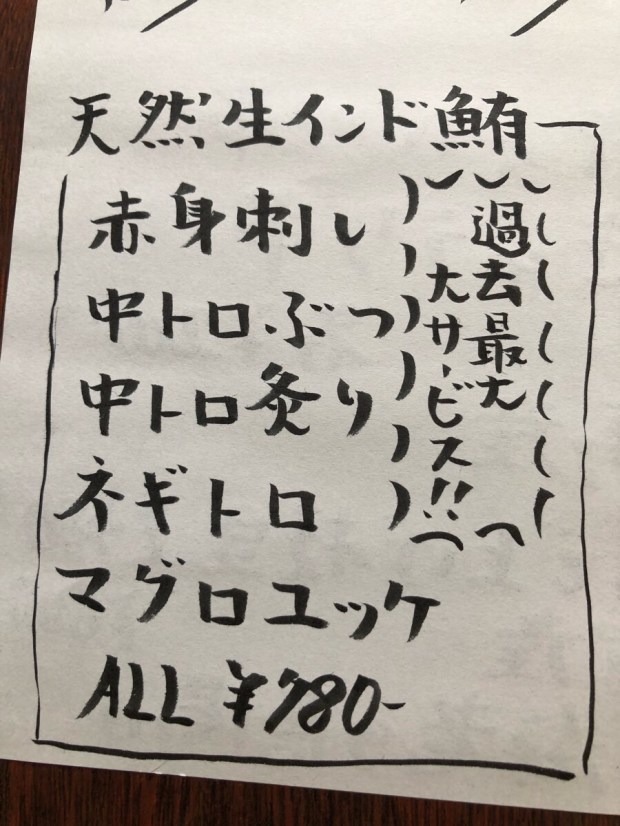 天然生インド鮪
赤身刺し
中トロぶつ
中トロ炙り
ネギトロ
マグロユッケ
ALL ¥780-
過去最大
大サービス!!